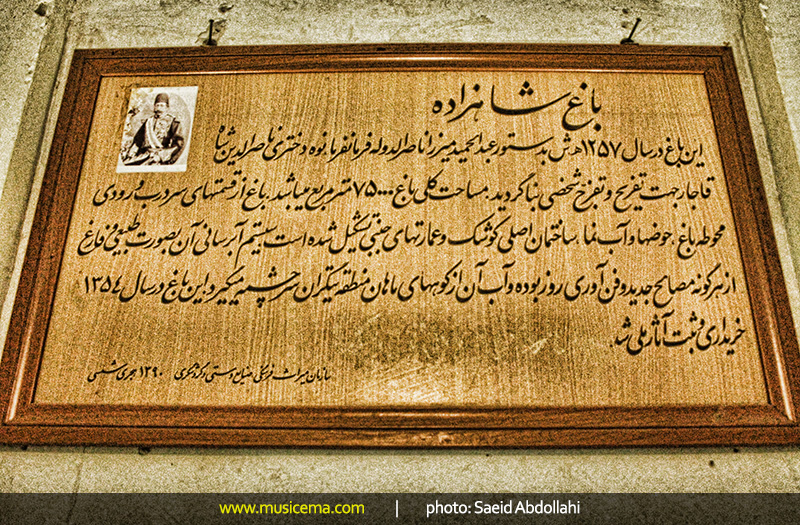 باغ شاهزاده
این باغ در سال ۱۲۵۷ ه.ش بدستور عبدالحمید میرزا ناصرالدوله فرمانفرما نوه دختری ناصرالدین شاه
قاجار جهت تفریح و تفرج شخصی بنا گردید. مساحت کلی باغ ۷۵۰۰۰ متر مربع میباشد. باغ از قسمتهای سردرب ورودی
محوطه باغ، حوضها و آب نما، ساختمان اصلی کوشک و عمارتهای جنبی تشکیل شده است. سیستم آبرسانی آن بصورت طبیعی و فارغ
از هرگونه مصالح جدید و فن آوری روز بوده و آب آن از کوههای ماهان منطقه تیگران سرچشمه میگیرد. این باغ در سال ۱۳۵۴
خریداری و ثبت آثار ملی شد.
سازمان میراث فرهنگی، صنایع دستی و گردشگری ۱۳۹۰ هجری شمسی
www.musicema.com | photo: Saeid Abdollahi